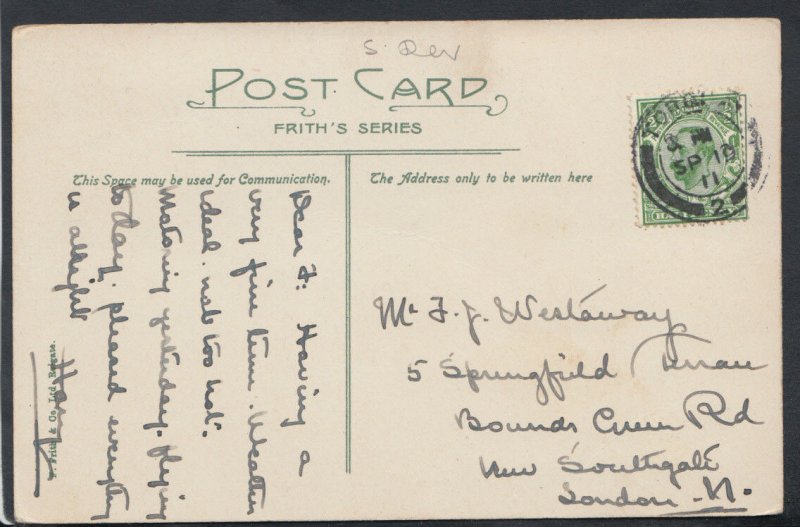 S. Dev
POST CARD
FRITH'S SERIES
This Space may be used for Communication.
The Address only to be written here
Dear F: Having a
very fine time. Weather
ideal. not too hot.
Motoring yesterday. flying
to day, pleased everything
is allright
Harry
F. Frith & Co. Ltd., Reigate.
Mr F. J. Westaway
5 Springfield Terrace
Bounds Green Rd
New Southgate
London - N.
TORQUAY
PM
SP 18
11
2